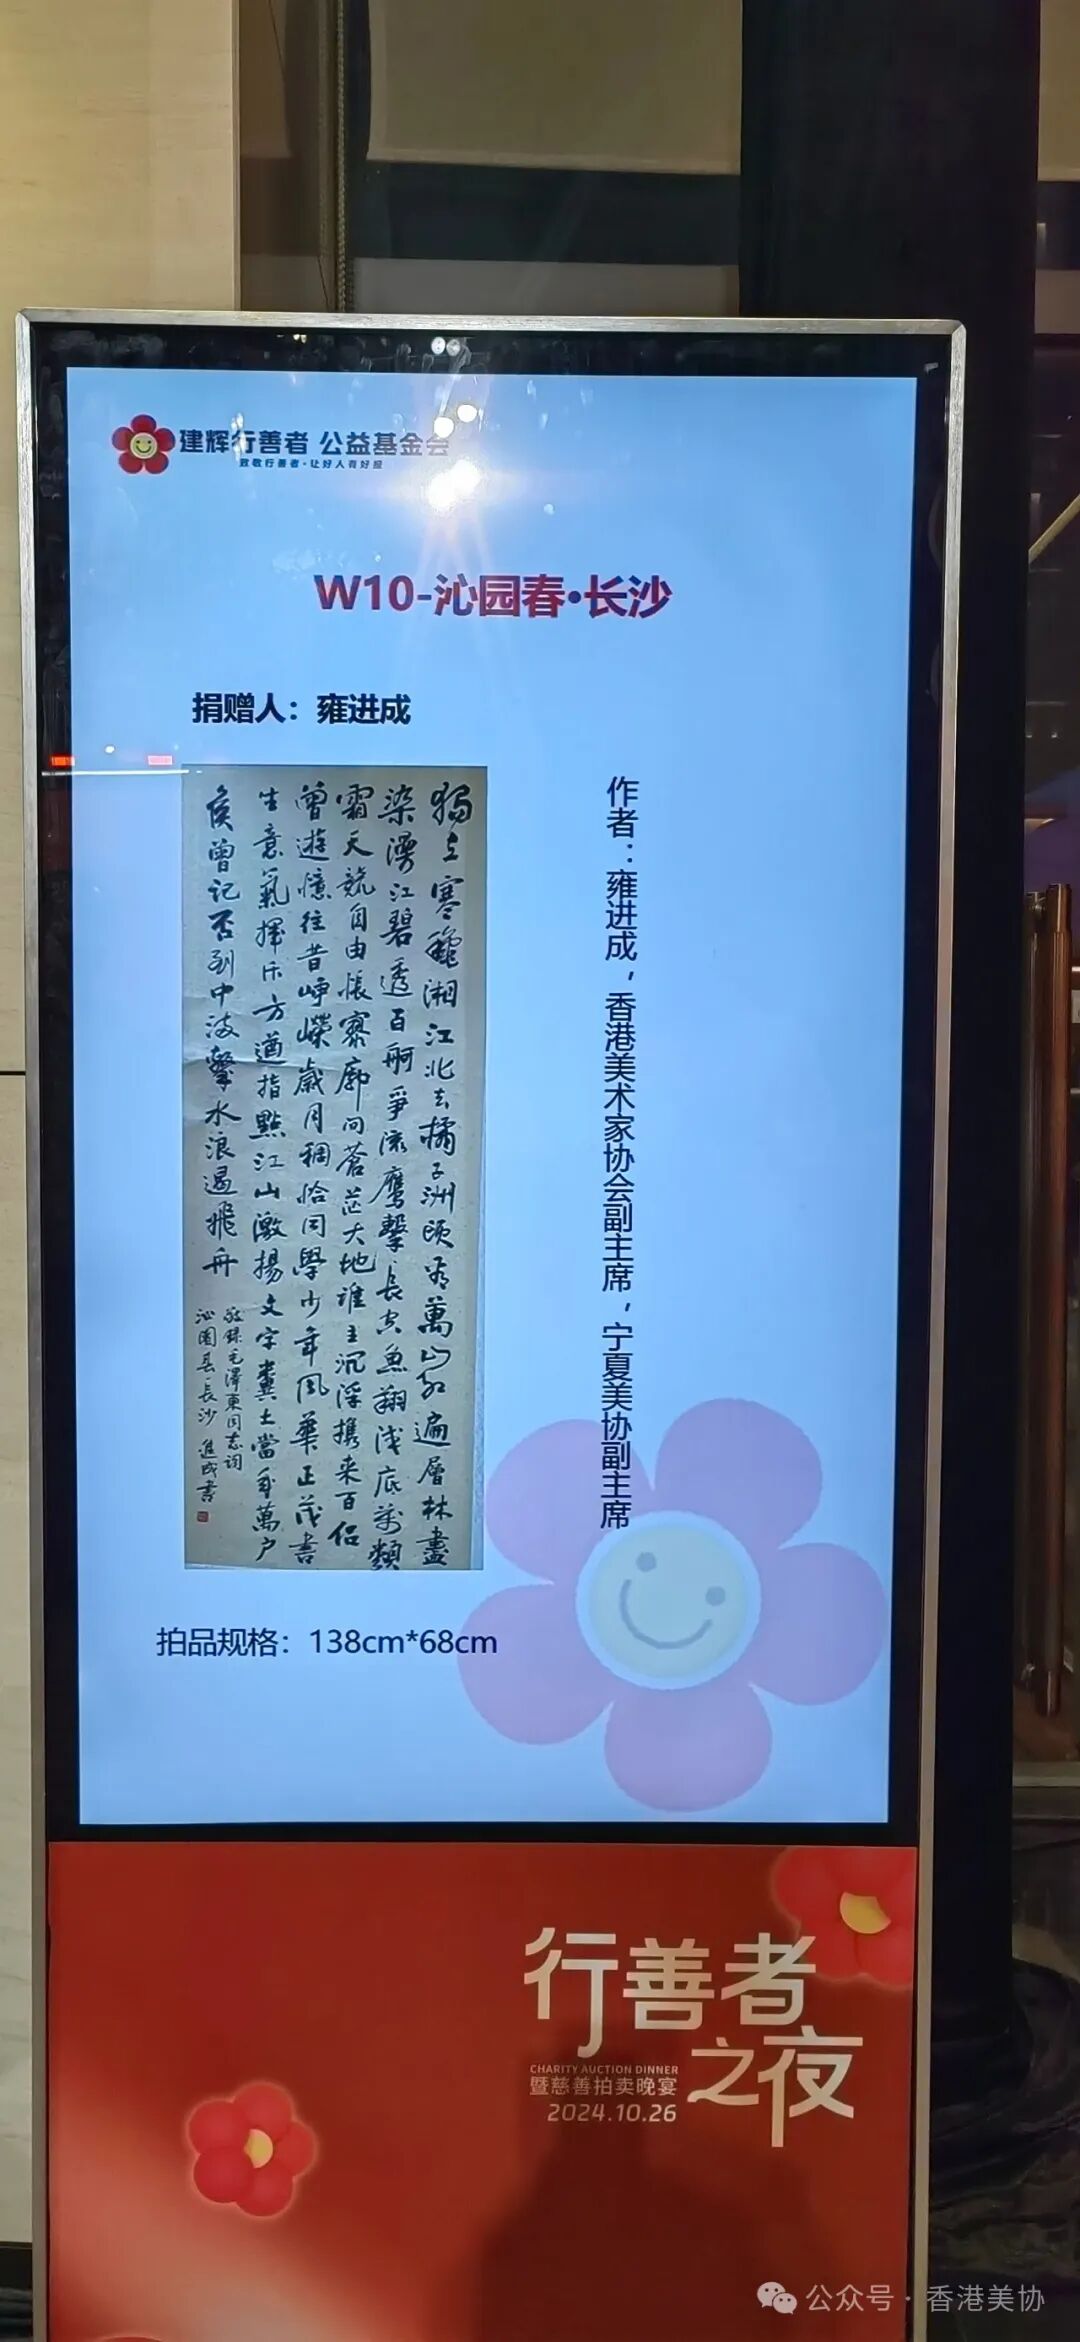 建辉行善者 公益基金会
致敬行善者·让好人有好报
W10-沁园春·长沙
捐赠人：雍进成
獨立寒龝湘江北去橘子洲頭看萬山紅遍層林盡
染漫江碧透百舸爭流鹰擊長空魚翔浅底萬類
霜天競自由悵寥廓問蒼茫大地誰主沉浮携来百侣
曾遊憶往昔崢嶸歲月稠恰同學少年風華正茂書
生意氣揮斥方遒指點江山激揚文字糞土當年萬户
侯曾記否到中流擊水浪遏飛舟
敬錄毛澤東同志詞
沁園春長沙 進成書
作者：雍进成，香港美术家协会副主席，宁夏美协副主席
拍品规格：138cm*68cm
行善者
之夜
CHARITY AUCTION DINNER
暨慈善拍卖晚宴
2024.10.26
公众号·香港美协